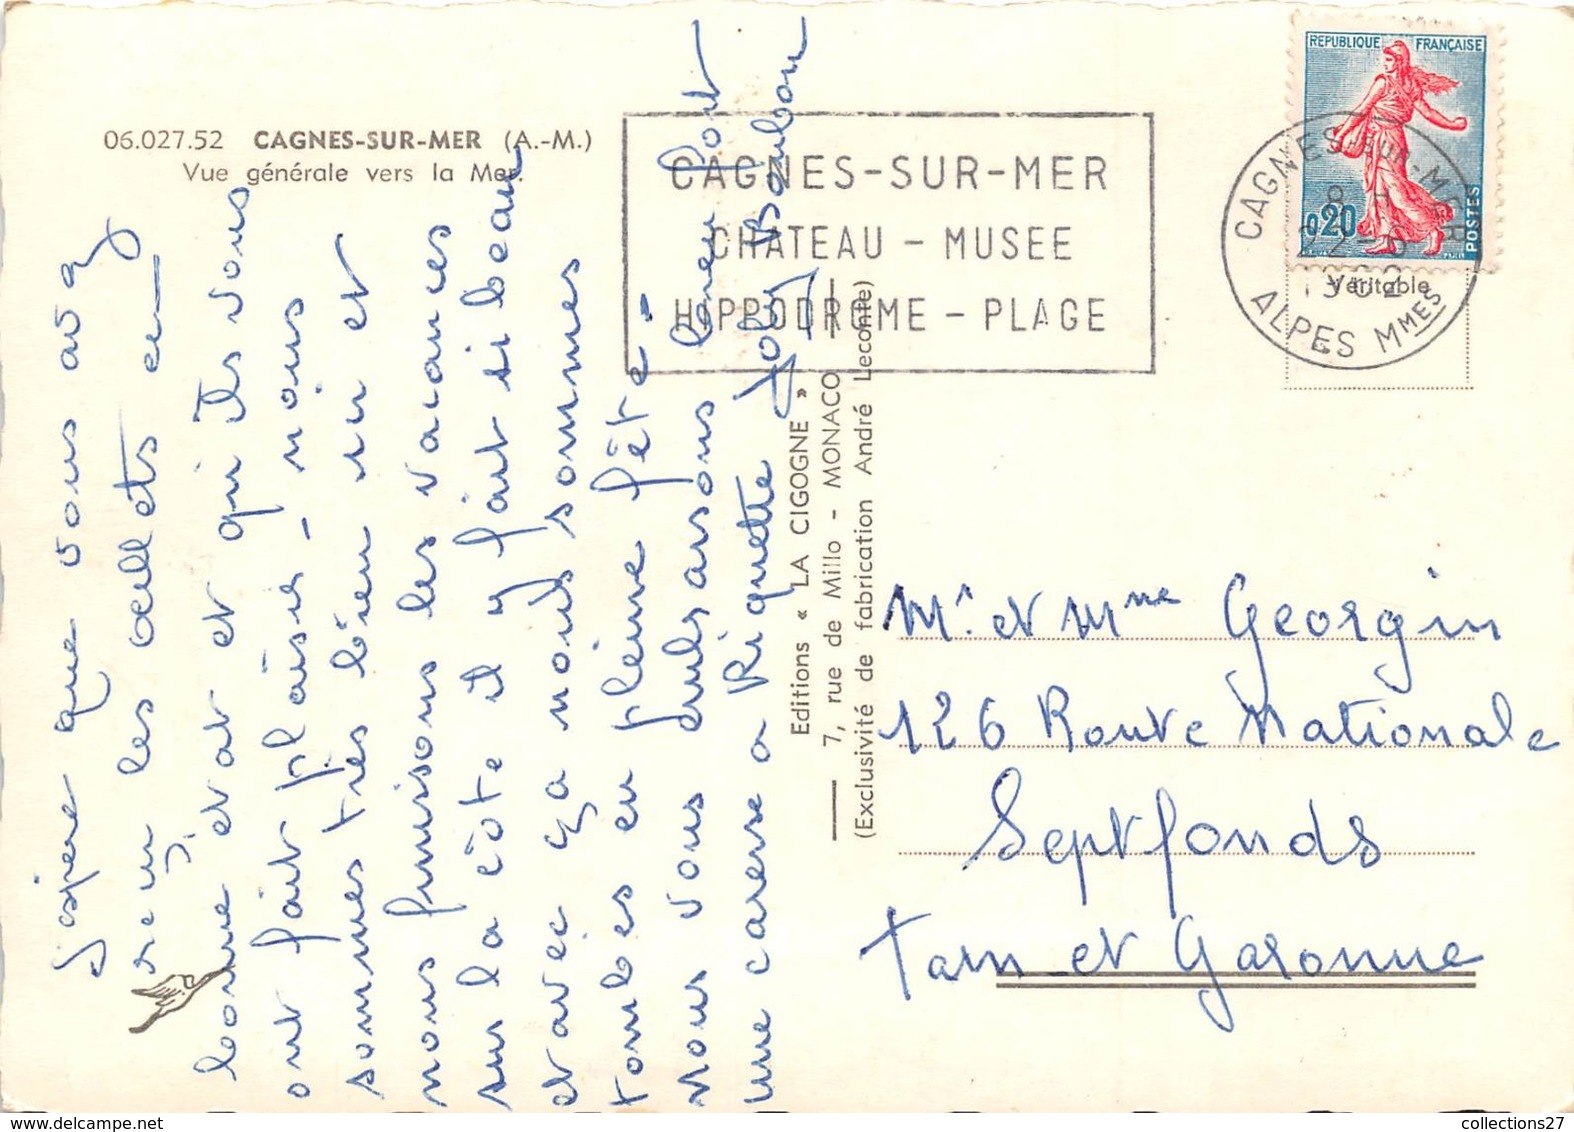 06.027.52 CAGNES-SUR-MER (A.-M.)
Vue générale vers la Mer.
CAGNES-SUR-MER
CHATEAU - MUSEE
HIPPODROME - PLAGE
REPUBLIQUE FRANÇAISE
0,20
POSTES
CAGNES-SUR-MER
8 H
22-6
1962
ALPES MMES
Véritable
J'espère que vous avez
reçu les œillets en
bonne état et qu'ils vous
ont fait plaisir - nous
sommes très bien ici et
nous finissons les vacances
sur la côte il y fait si beau
et avec ça nous sommes
tombés en pleine fête -
Nous vous embrassons bien fort
une caresse a Riquette
Editions « LA CIGOGNE »
7, rue de Millo - MONACO
(Exclusivité de fabrication André Leconte)
Mr. et Mme Georgin
126 Route Nationale
Septfonds
Tarn et Garonne
collections27